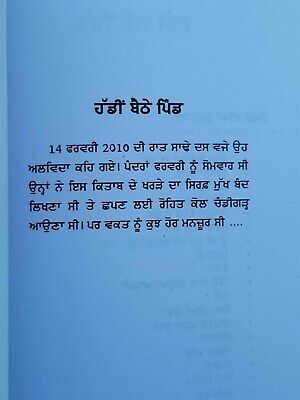 ਹੱਡੀਂ ਬੈਠੇ ਪਿੰਡ
14 ਫਰਵਰੀ 2010 ਦੀ ਰਾਤ ਸਾਢੇ ਦਸ ਵਜੇ ਉਹ
ਅਲਵਿਦਾ ਕਹਿ ਗਏ। ਪੰਦਰਾਂ ਫਰਵਰੀ ਨੂੰ ਸੋਮਵਾਰ ਸੀ
ਉਨ੍ਹਾਂ ਨੇ ਇਸ ਕਿਤਾਬ ਦੇ ਖਰੜੇ ਦਾ ਸਿਰਫ਼ ਮੁੱਖ ਬੰਦ
ਲਿਖਣਾ ਸੀ ਤੇ ਛਪਣ ਲਈ ਰੋਹਿਤ ਕੋਲ ਚੰਡੀਗੜ੍ਹ
ਆਉਣਾ ਸੀ। ਪਰ ਵਕਤ ਨੂੰ ਕੁਝ ਹੋਰ ਮਨਜ਼ੂਰ ਸੀ ....